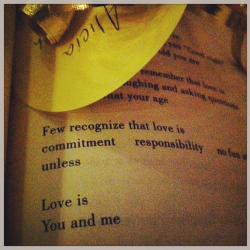 Alicia
you "Good night"
ould you are
remember that love is
ughing and asking questions
hat your age
Few recognize that love is
commitment responsibility no fun a
unless
Love is
You and me